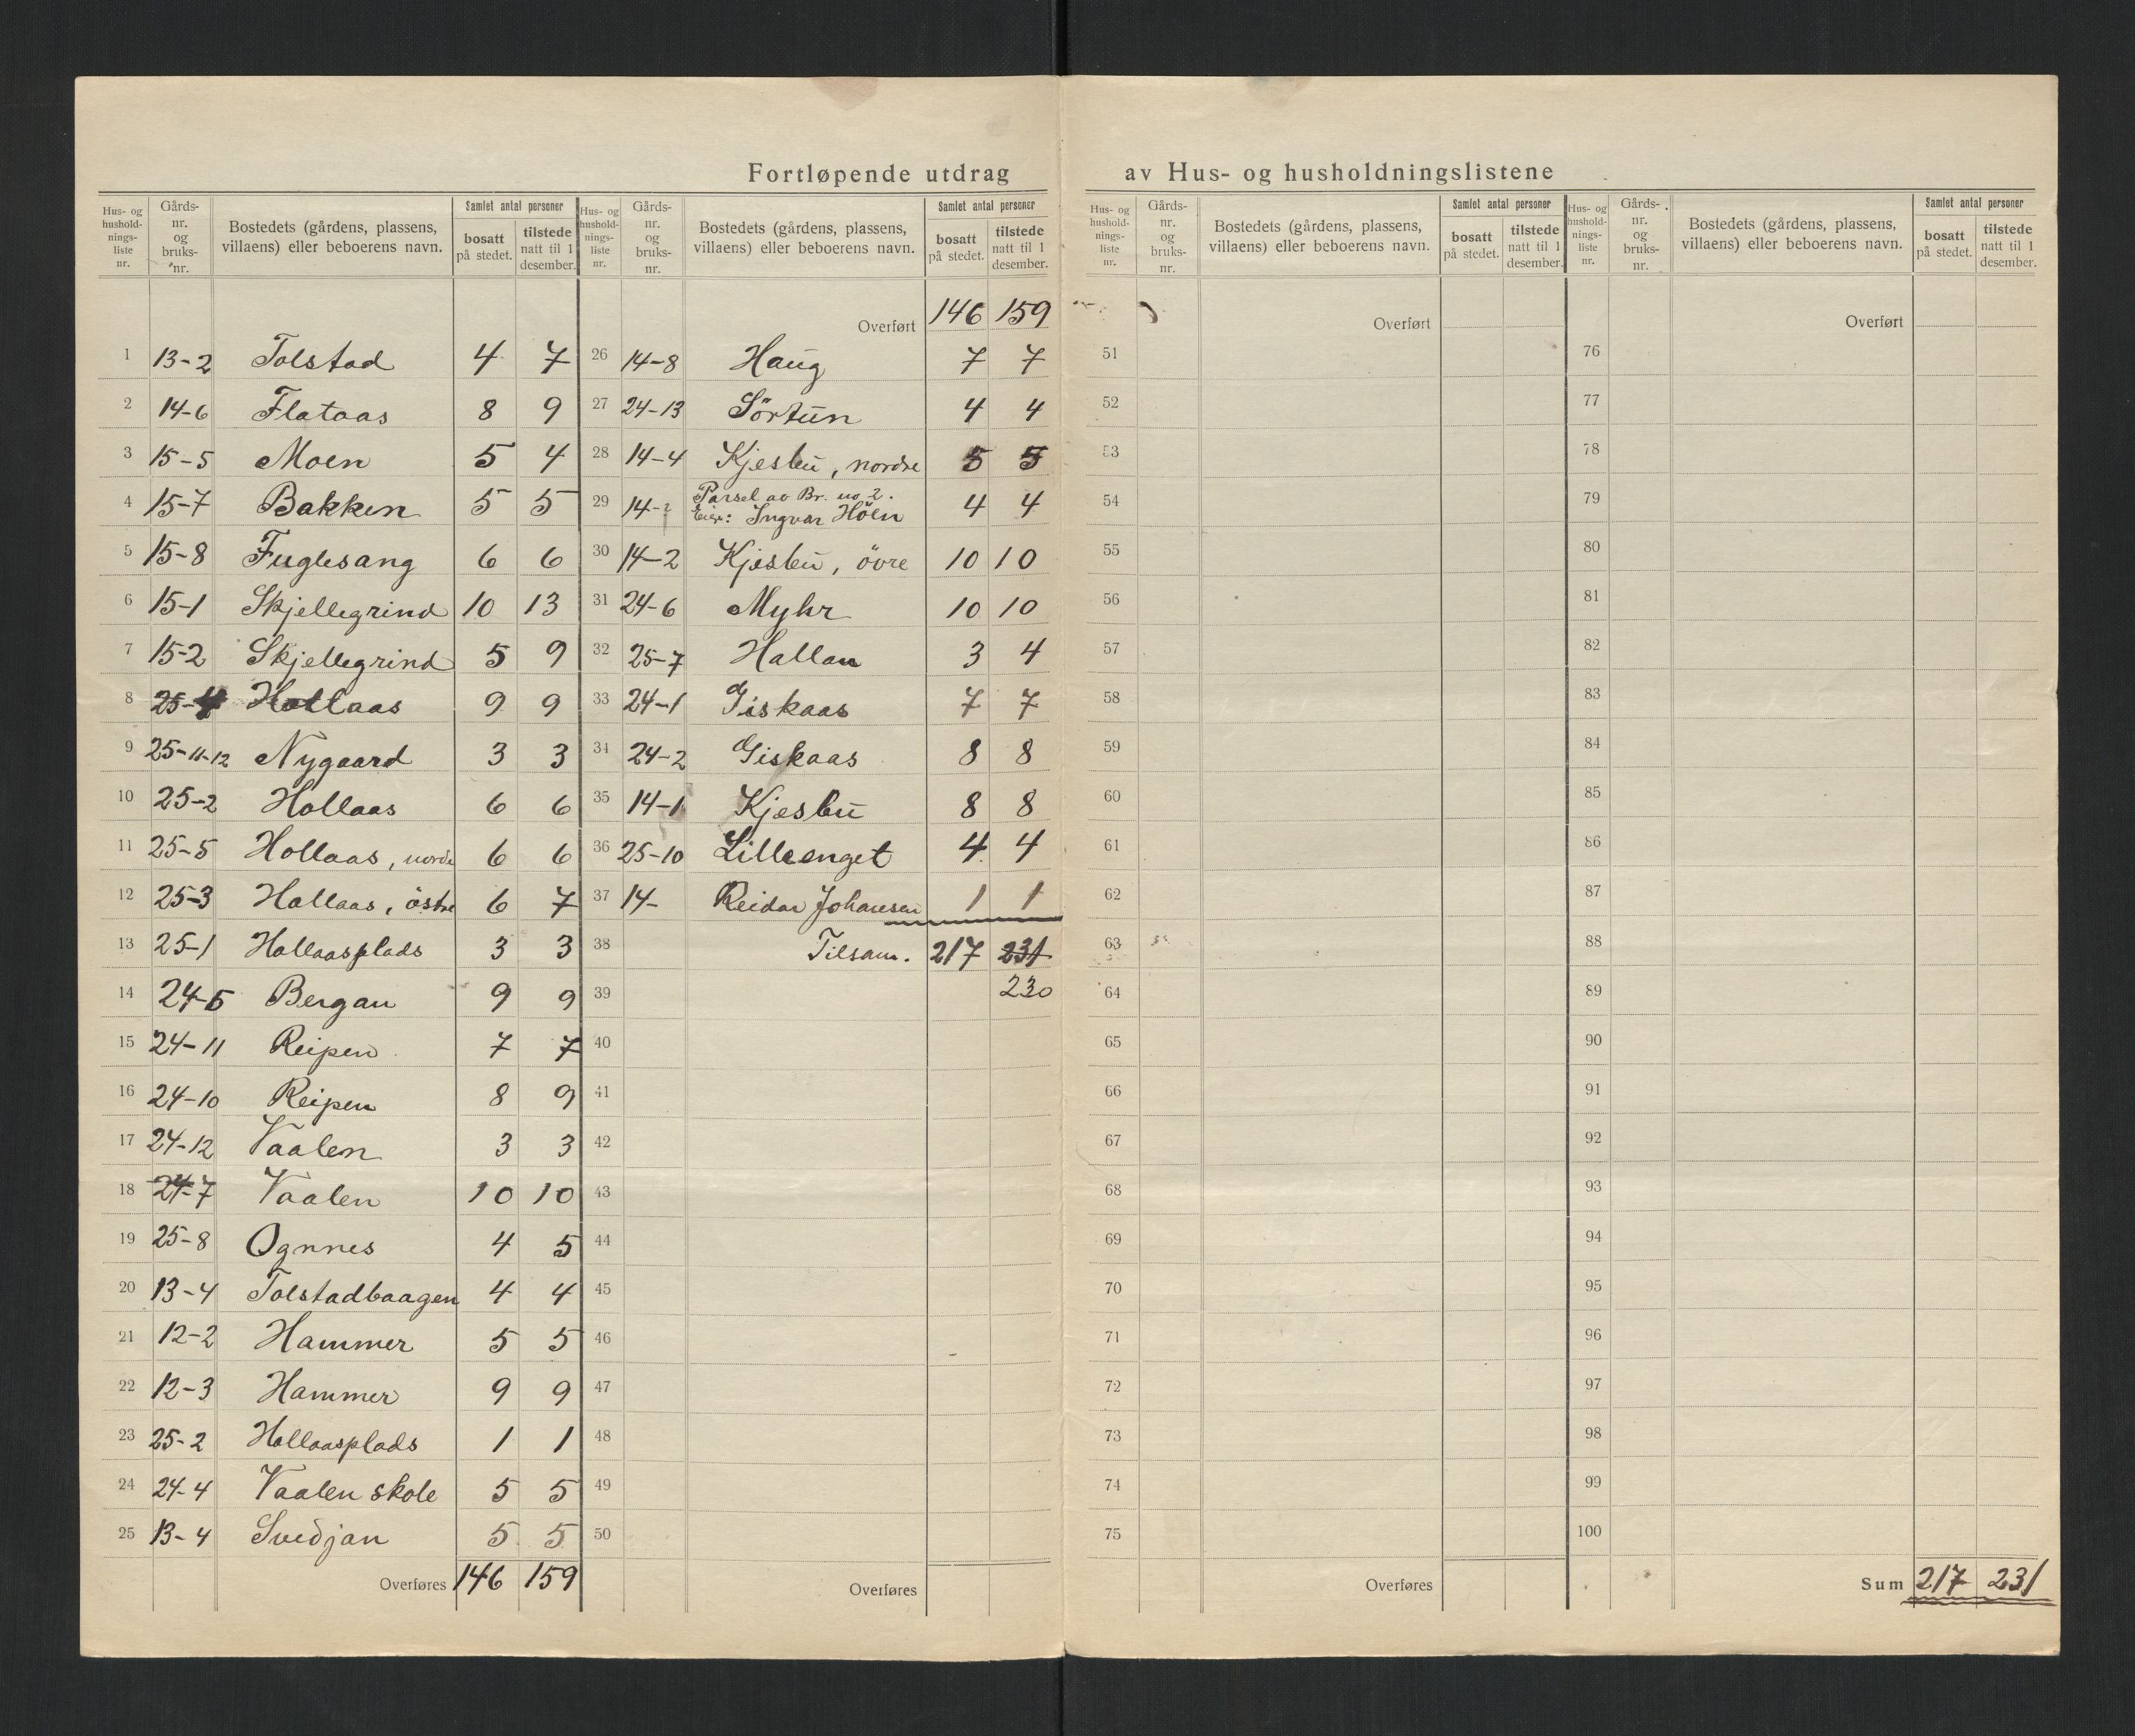 Fortløpende utdrag av Hus- og husholdningslistene
Hus- og hushold- nings- liste nr.
Gårds- nr. og bruks- nr.
Bostedets (gårdens, plassens, villaens) eller beboerens navn.
Samlet antal personer
bosatt på stedet.
tilstede natt til 1 desember.
1 13-2 Tolstad 4 7
2 14-6 Flataas 8 9
3 15-5 Moen 5 4
4 15-7 Bakken 5 5
5 15-8 Fuglesang 6 6
6 15-1 Skjellegrind 10 13
7 15-2 Skjellegrind 5 9
8 25-4 Hollaas 9 9
9 25-11-12 Nygaard 3 3
10 25-2 Hollaas 6 6
11 25-5 Hollaas, nordre 6 6
12 25-3 Hollaas, östre 6 7
13 25-1 Hollaasplads 3 3
14 24-5 Bergan 9 9
15 24-11 Reipen 7 7
16 24-10 Reipen 8 9
17 24-12 Vaalen 3 3
18 24-7 Vaalen 10 10
19 25-8 Ognnes 4 5
20 13-4 Tolstadbaagen 4 4
21 12-2 Hammer 5 5
22 12-3 Hammer 9 9
23 25-2 Hollaasplads 1 1
24 24-4 Vaalen skole 5 5
25 13-4 Svedjan 5 5
Overføres 146 159
Hus- og hushold- nings- liste nr.
Gårds- nr. og bruks- nr.
Bostedets (gårdens, plassens, villaens) eller beboerens navn.
Samlet antal personer
bosatt på stedet.
tilstede natt til 1 desember.
Overført 146 159
26 14-8 Haug 7 7
27 24-13 Sörtun 4 4
28 14-4 Kjesbu, nordre 5 5
29 14-2 Parsel av Br. no 2.
Eier: Ingvar Höen 4 4
30 14-2 Kjesbu, övre 10 10
31 24-6 Myhr 10 10
32 25-7 Hallan 3 4
33 24-1 Giskaas 7 7
34 24-2 Giskaas 8 8
35 14-1 Kjesbu 8 8
36 25-10 Lilleenget 4 4
37 14- Reidar Johansen 1 1
38 Tilsam. 217 231
39 230
40
41
42
43
44
45
46
47
48
49
50
Overføres
Hus- og hushold- nings- liste nr.
Gårds- nr. og bruks- nr.
Bostedets (gårdens, plassens, villaens) eller beboerens navn.
Samlet antal personer
bosatt på stedet.
tilstede natt til 1 desember.
Overført
51
52
53
54
55
56
57
58
59
60
61
62
63
64
65
66
67
68
69
70
71
72
73
74
75
Overføres
Hus- og hushold- nings- liste nr.
Gårds- nr. og bruks- nr.
Bostedets (gårdens, plassens, villaens) eller beboerens navn.
Samlet antal personer
bosatt på stedet.
tilstede natt til 1 desember.
Overført
76
77
78
79
80
81
82
83
84
85
86
87
88
89
90
91
92
93
94
95
96
97
98
99
100
Sum 217 231